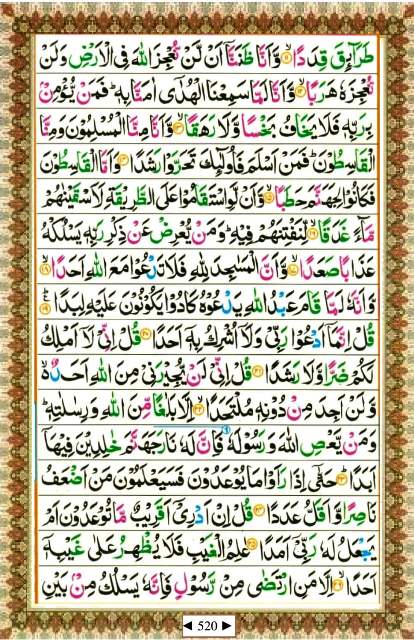 طَرَآئِقَ قِدَدًا ۙ﴿۱۱﴾ وَّ اَنَّا ظَنَنَّاۤ اَنْ لَّنْ نُّعْجِزَ اللّٰهَ فِی الْاَرْضِ وَلَنْ
نُّعْجِزَهٗ هَرَبًا ۙ﴿۱۲﴾ وَّ اَنَّا لَمَّا سَمِعْنَا الْهُدٰۤی اٰمَنَّا بِهٖ ؕ فَمَنْ یُّؤْمِنْۢ
بِرَبِّهٖ فَلَا یَخَافُ بَخْسًا وَّ لَا رَهَقًا ۙ﴿۱۳﴾ وَّ اَنَّا مِنَّا الْمُسْلِمُوْنَ وَمِنَّا
الْقٰسِطُوْنَ ؕ فَمَنْ اَسْلَمَ فَاُولٰٓئِكَ تَحَرَّوْا رَشَدًا ﴿۱۴﴾ وَ اَمَّا الْقٰسِطُوْنَ
فَكَانُوْا لِجَهَنَّمَ حَطَبًا ۙ﴿۱۵﴾ وَّ اَنْ لَّوِ اسْتَقَامُوْا عَلَی الطَّرِیْقَةِ لَاَسْقَیْنٰهُمْ
مَّآءً غَدَقًا ۙ﴿۱۶﴾ لِّنَفْتِنَهُمْ فِیْهِ ؕ وَمَنْ یُّعْرِضْ عَنْ ذِكْرِ رَبِّهٖ یَسْلُكْهُ
عَذَابًا صَعَدًا ۙ﴿۱۷﴾ وَّ اَنَّ الْمَسٰجِدَ لِلّٰهِ فَلَا تَدْعُوْا مَعَ اللّٰهِ اَحَدًا ۙ﴿۱۸﴾
وَّ اَنَّهٗ لَمَّا قَامَ عَبْدُ اللّٰهِ یَدْعُوْهُ كَادُوْا یَكُوْنُوْنَ عَلَیْهِ لِبَدًا ؕ﴿۱۹﴾
قُلْ اِنَّمَاۤ اَدْعُوْا رَبِّیْ وَلَاۤ اُشْرِكُ بِهٖۤ اَحَدًا ﴿۲۰﴾ قُلْ اِنِّیْ لَاۤ اَمْلِكُ
لَكُمْ ضَرًّا وَّ لَا رَشَدًا ﴿۲۱﴾ قُلْ اِنِّیْ لَنْ یُّجِیْرَنِیْ مِنَ اللّٰهِ اَحَدٌ ۙ۬
وَّ لَنْ اَجِدَ مِنْ دُوْنِهٖ مُلْتَحَدًا ۙ﴿۲۲﴾ اِلَّا بَلٰغًا مِّنَ اللّٰهِ وَ رِسٰلٰتِهٖ ؕ
وَ مَنْ یَّعْصِ اللّٰهَ وَ رَسُوْلَهٗ فَاِنَّ لَهٗ نَارَ جَهَنَّمَ خٰلِدِیْنَ فِیْهَاۤ
اَبَدًا ؕ﴿۲۳﴾ حَتّٰۤی اِذَا رَاَوْا مَا یُوْعَدُوْنَ فَسَیَعْلَمُوْنَ مَنْ اَضْعَفُ
نَاصِرًا وَّ اَقَلُّ عَدَدًا ﴿۲۴﴾ قُلْ اِنْ اَدْرِیْۤ اَقَرِیْبٌ مَّا تُوْعَدُوْنَ اَمْ
یَجْعَلُ لَهٗ رَبِّیْۤ اَمَدًا ﴿۲۵﴾ عٰلِمُ الْغَیْبِ فَلَا یُظْهِرُ عَلٰی غَیْبِهٖۤ
اَحَدًا ۙ﴿۲۶﴾ اِلَّا مَنِ ارْتَضٰی مِنْ رَّسُوْلٍ فَاِنَّهٗ یَسْلُكُ مِنْۢ بَیْنِ
◄ 520 ►